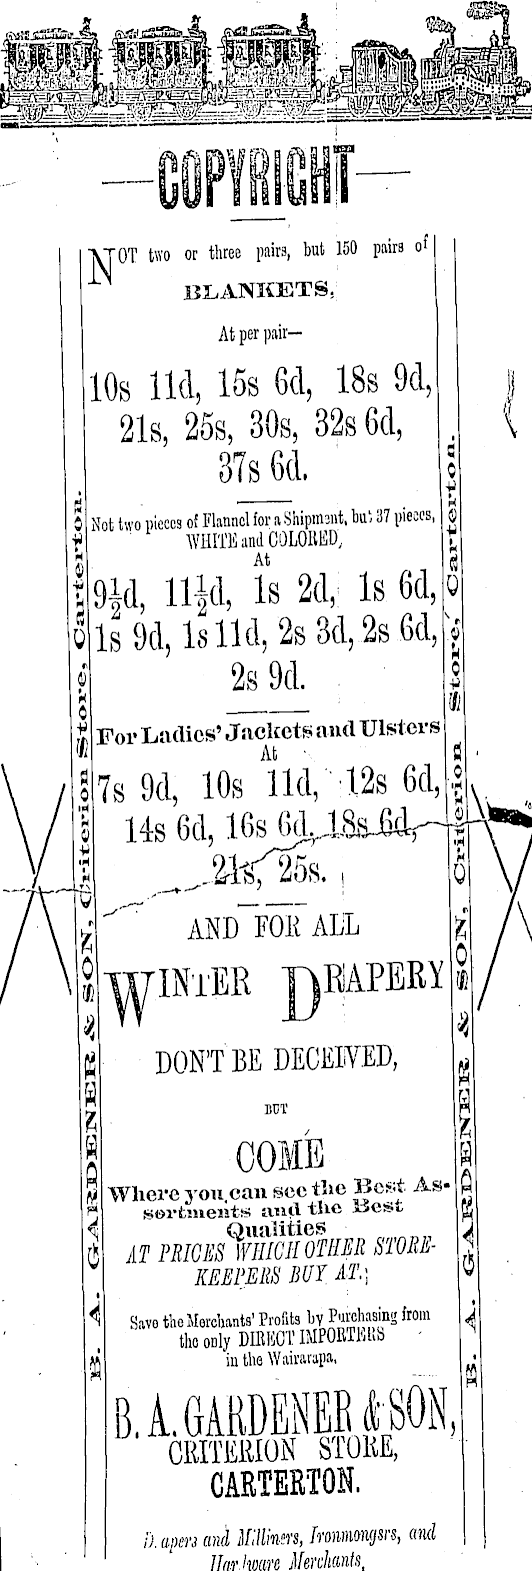 COPYRIGHT
NOT two or three pairs, but 150 pairs of
BLANKETS,
At per pair—
10s 11d, 15s 6d, 18s 9d,
21s, 25s, 30s, 32s 6d,
37s 6d.
Not two pieces of Flannel for a Shipment, but 37 pieces,
WHITE and COLORED,
At
9½d, 11½d, 1s 2d, 1s 6d,
1s 9d, 1s 11d, 2s 3d, 2s 6d,
2s 9d.
For Ladies' Jackets and Ulsters
At
7s 9d, 10s 11d, 12s 6d,
14s 6d, 16s 6d, 18s 6d,
21s, 25s.
AND FOR ALL
WINTER DRAPERY
DON'T BE DECEIVED,
BUT
COME
Where you can see the Best As-
sortments and the Best
Qualities
AT PRICES WHICH OTHER STORE-
KEEPERS BUY AT.;
Save the Merchants' Profits by Purchasing from
the only DIRECT IMPORTERS
in the Wairarapa,
B. A. GARDENER & SON,
CRITERION STORE,
CARTERTON.
Drapers and Milliners, Ironmongers, and
Hardware Merchants,
B. A. GARDENER & SON, Criterion Store, Carterton.
B. A. GARDENER & SON, Criterion Store, Carterton.